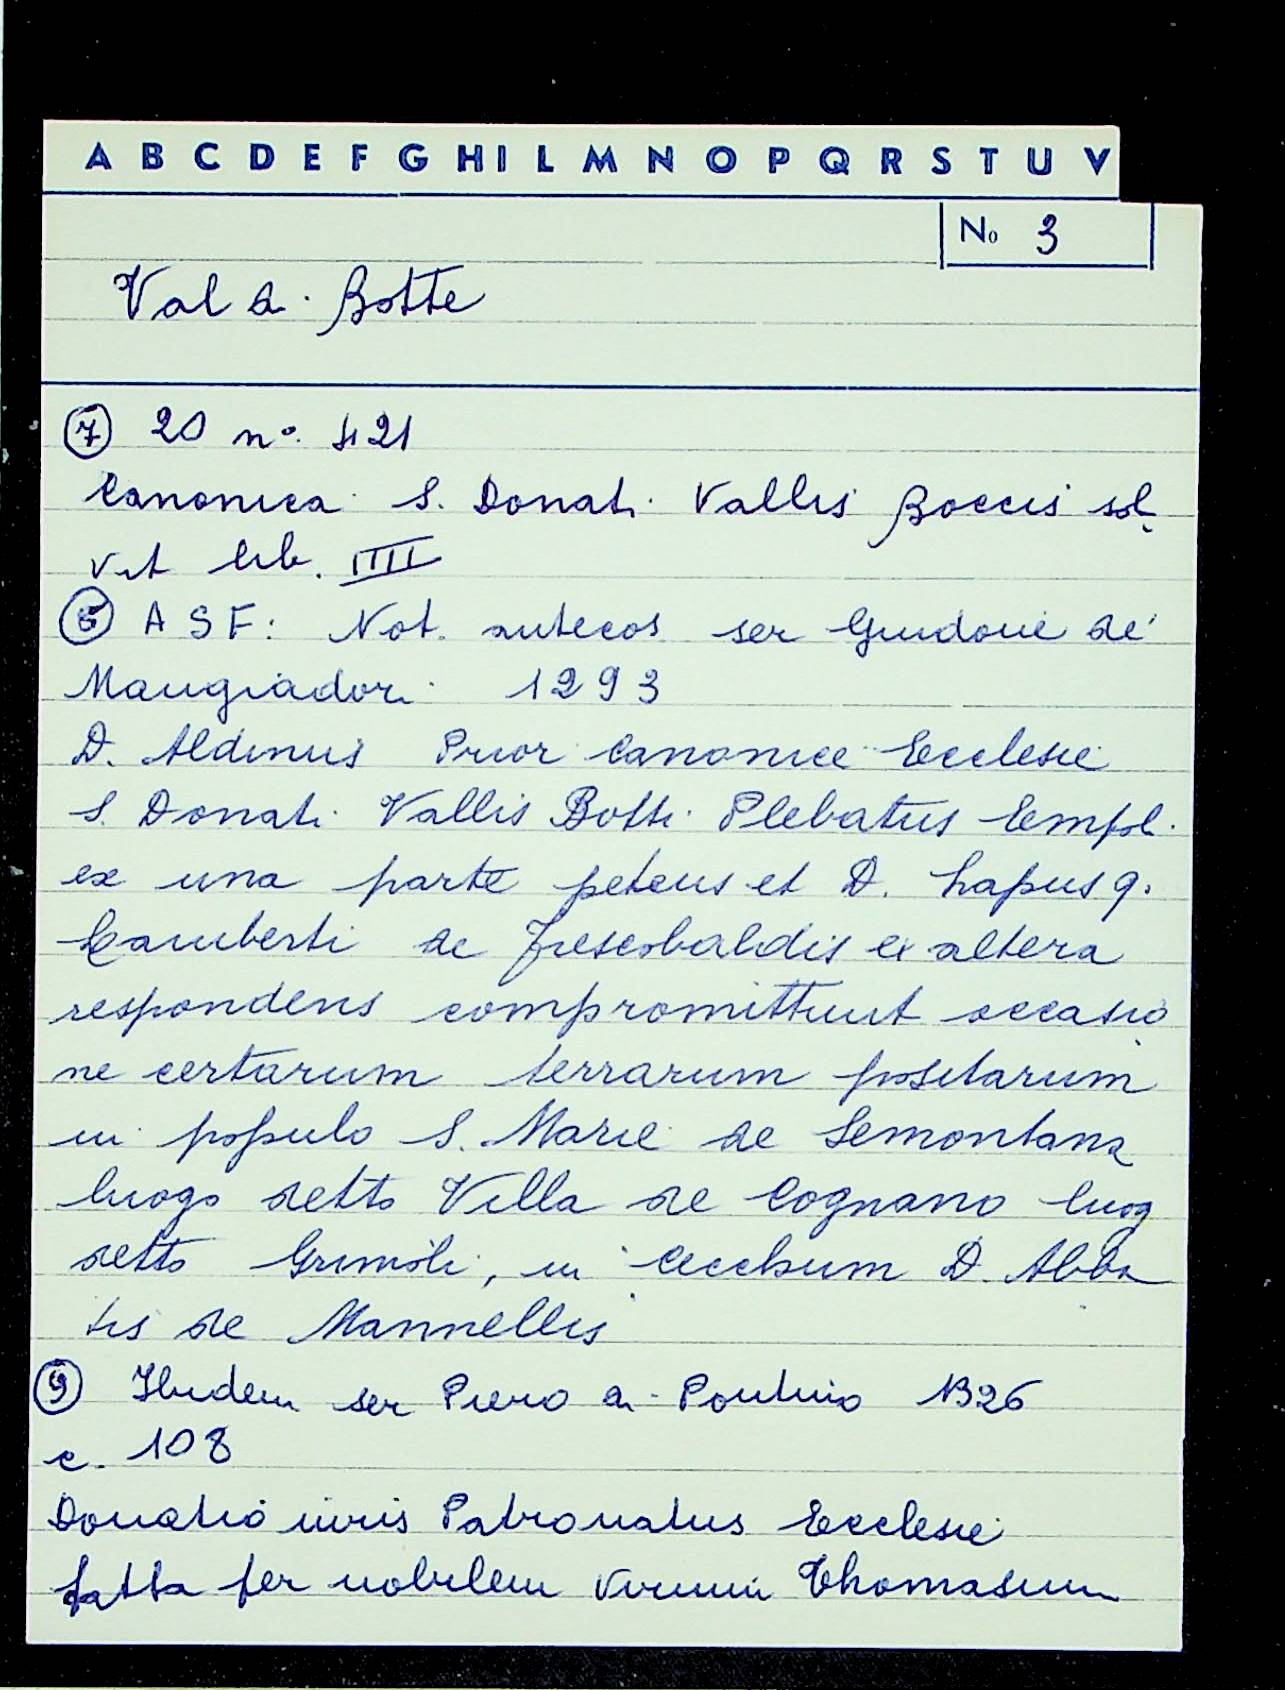 A B C D E F G H I L M N O P Q R S T U V
No 3
Val di Botte
⑦ 20 no. 421
Canonica S. Donati Vallis Boccis sol
vit lib. IIII
ASF: Not. antecos ser Guidone de'
Mangiadori 1293
D. Aldinus Prior Canonice Ecclesie
S. Donati Vallis Botti Plebatus Empol.
ex una parte petens et D. Lapus q.
Lamberti de Frescobaldis ex altera
respondens compromittunt occasio
ne certarum terrarum positarum
in populo S. Marie de Semontana
luogo detto Villa de Cognano luog
detto Grimoli, in Cecchum D. Abba
tis de Mannellis
⑨ Ibidem ser Piero da Pontuio 1326
c. 108
Donatio iuris Patronatus Ecclesie
fatta per nobilem virum Thomasum